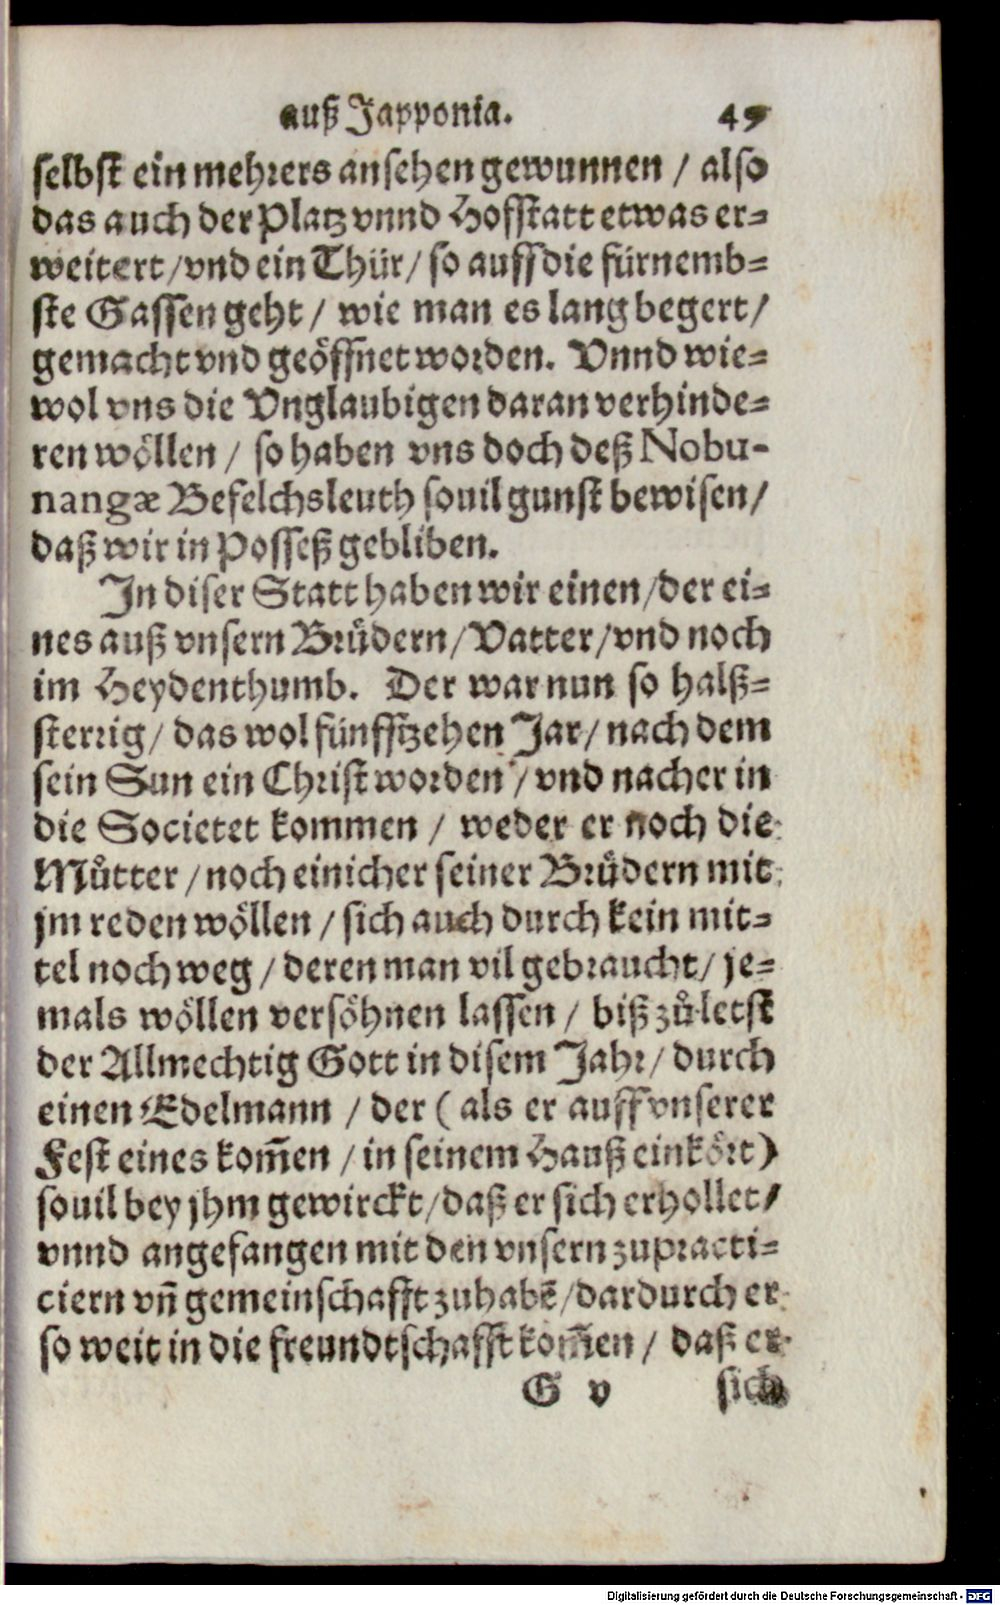 auß Japponia. 49
selbst ein mehrers ansehen gewunnen / also
das auch der Platz vnnd Hofstatt etwas er=
weitert / vnd ein Thür / so auff die fürnemb=
ste Gassen geht / wie man es lang begert /
gemacht vnd geöffnet worden. Vnnd wie=
wol vns die Vnglaubigen daran verhinde=
ren wöllen / so haben vns doch deß Nobu-
nangæ Befelchsleuth souil gunst bewisen /
daß wir in Posseß gebliben.
In diser Statt haben wir einen / der ei=
nes auß vnsern Brüdern / Vatter / vnd noch
im Heydenthumb. Der war nun so halß=
sterrig / das wol fünfftzehen Jar / nach dem
sein Sun ein Christ worden / vnd nacher in
die Societet kommen / weder er noch die
Můtter / noch einicher seiner Brüdern mit
jm reden wöllen / sich auch durch kein mit=
tel noch weg / deren man vil gebraucht / je=
mals wöllen versöhnen lassen / biß zů letst
der Allmechtig Gott in disem Jahr / durch
einen Edelmann / der ( als er auff vnserer
Fest eines kom̃en / in seinem Hauß einkört )
souil bey jhm gewirckt / daß er sich erhollet /
vnnd angefangen mit den vnsern zupracti=
ciern vñ gemeinschafft zuhabẽ / dardurch er
so weit in die freundtschafft kom̃en / daß er
G v sich
Digitalisierung gefördert durch die Deutsche Forschungsgemeinschaft - DFG